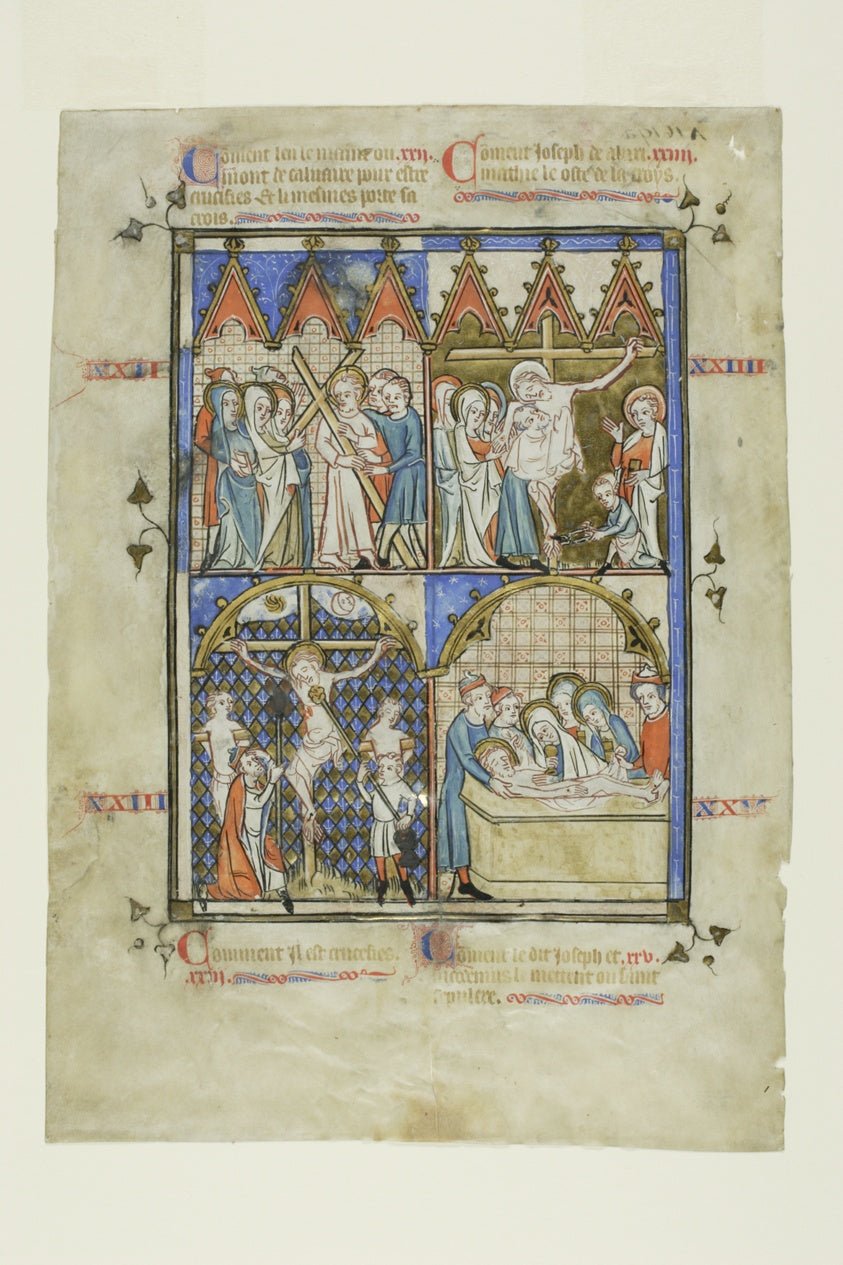 Coment len le maine ou .xxii.
mont de caluaire pour estre
crucefies Et li mesmes porte sa
crois.
Coment Joseph de abari .xxiiii.
mathie le oste de la croys.
XXII
XXIIII
XXIII
XXV
Comment Il est crucefies.
.xxiii.
Coment le dit Joseph et .xxv.
le mettent ou saint